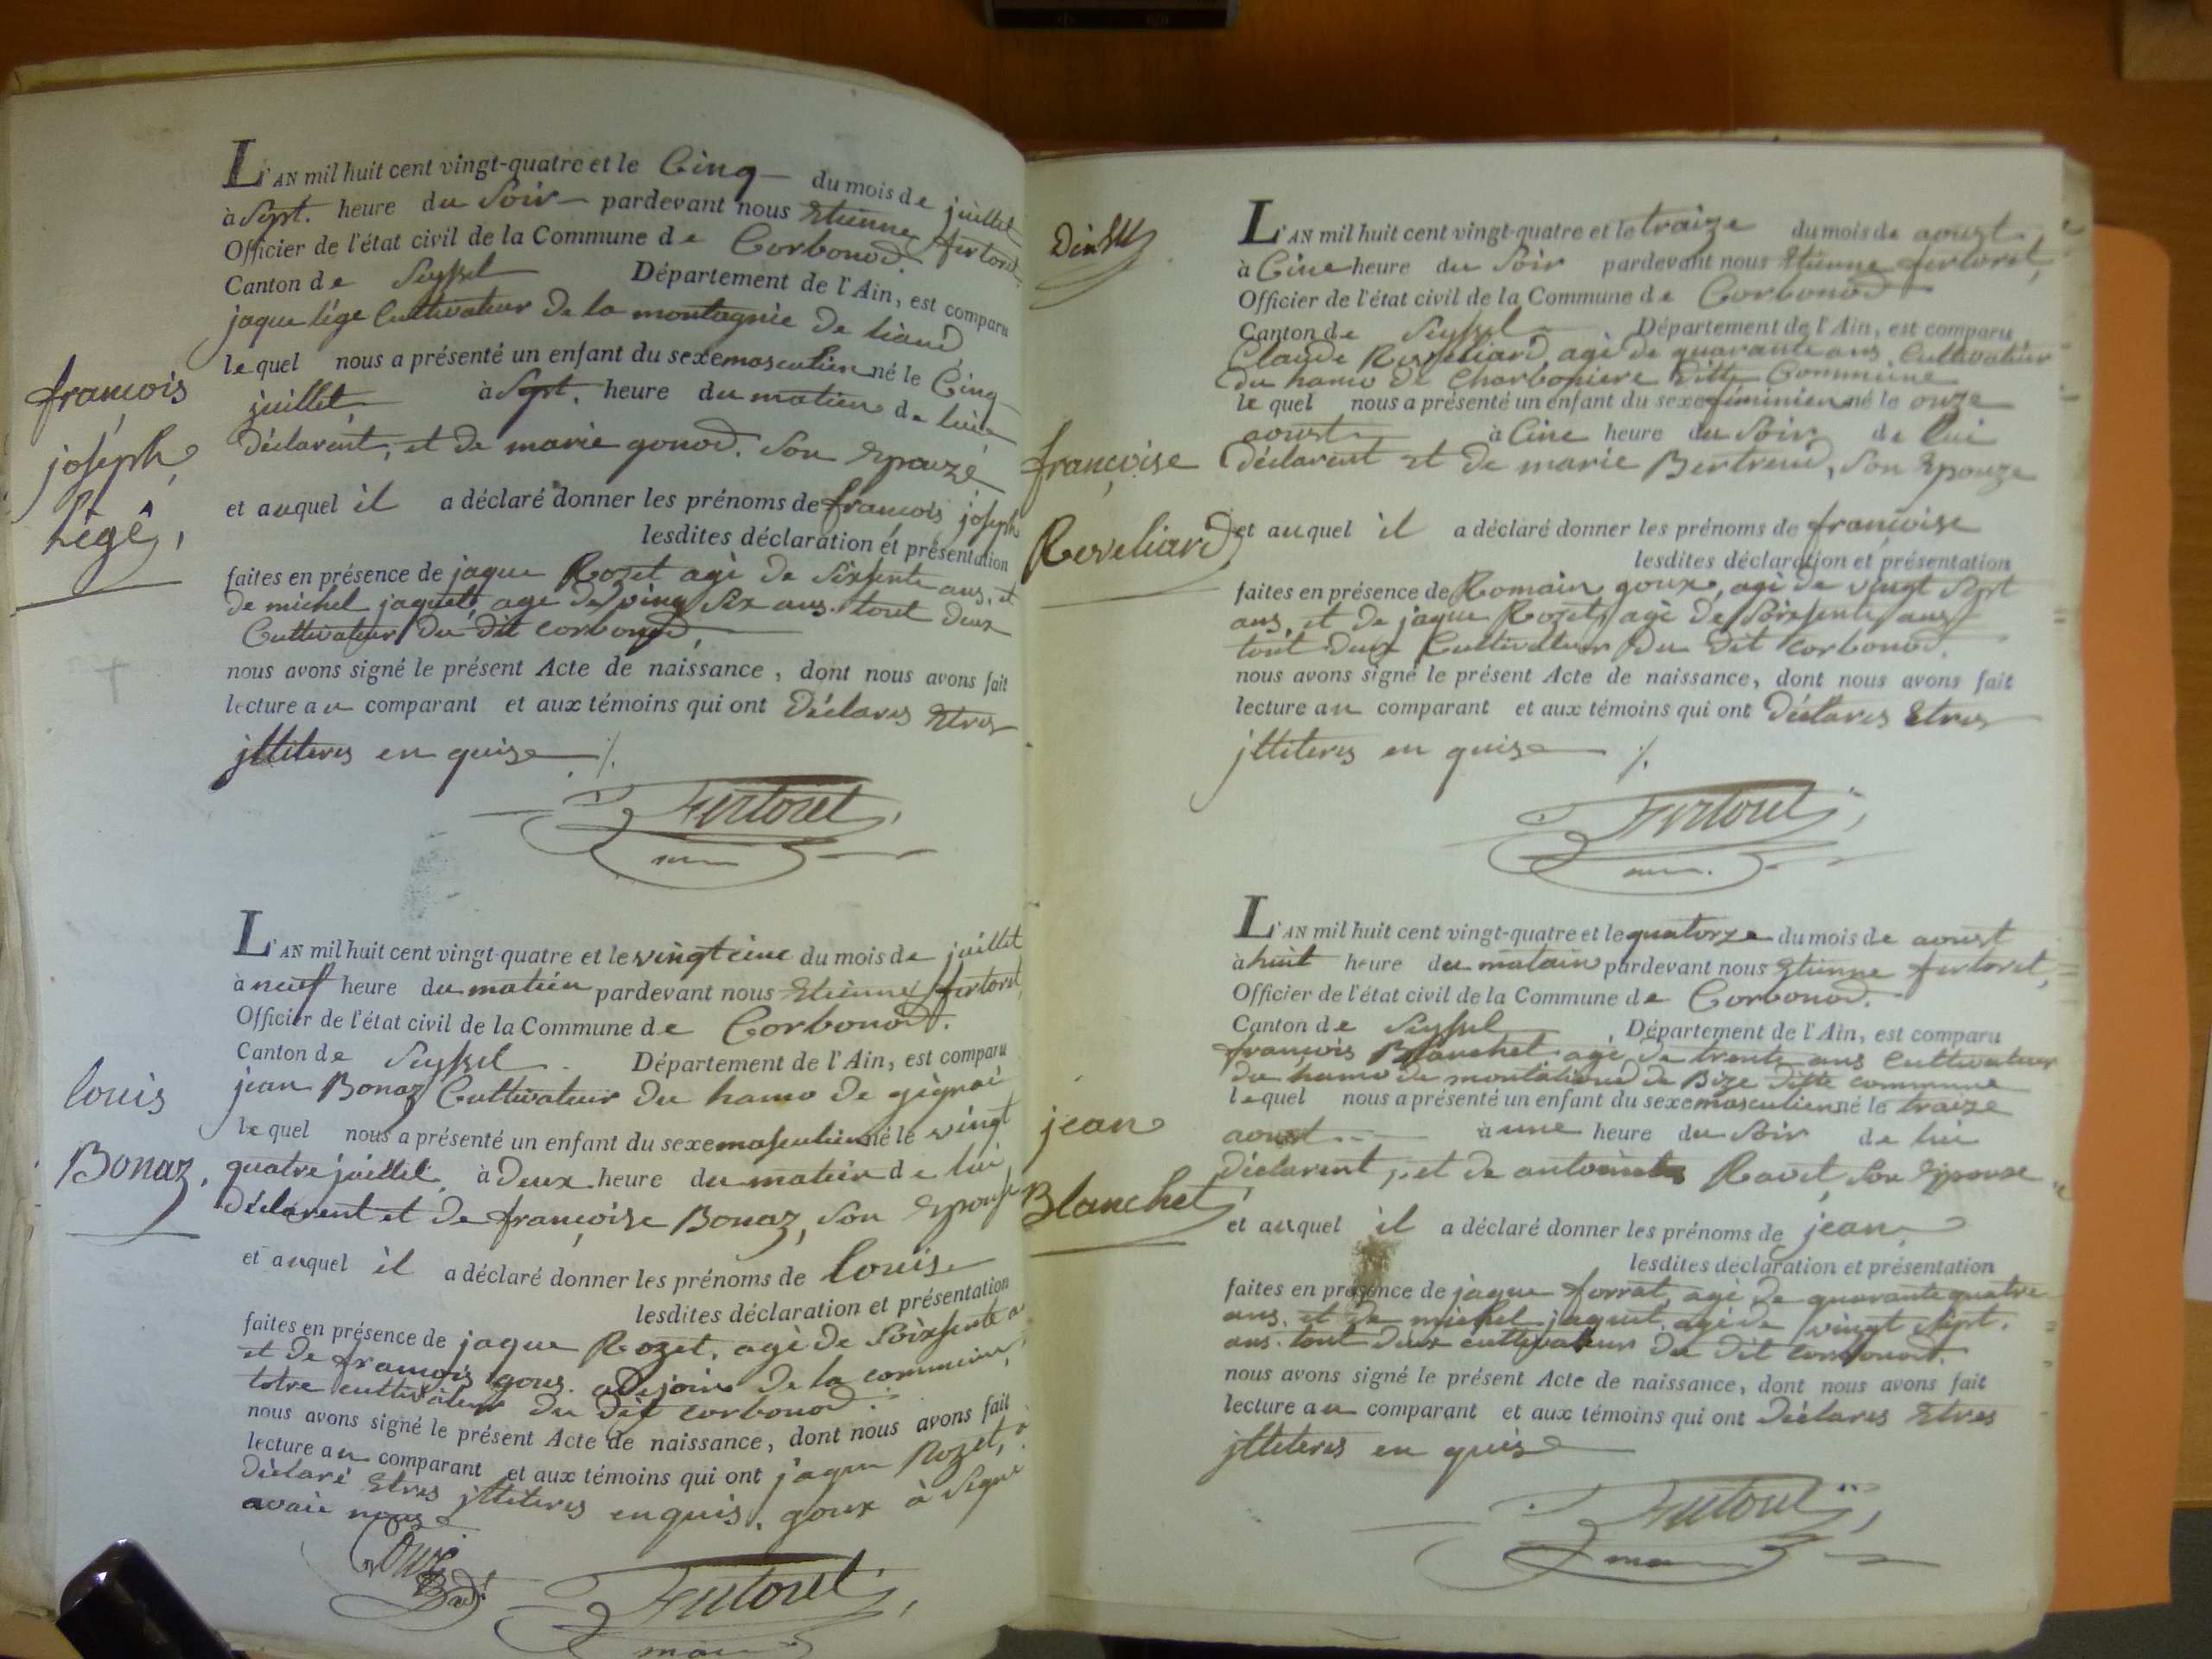 L'AN mil huit cent vingt-quatre et le Cinq du mois de juillet
à Sept. heure du Soir pardevant nous Etienne fertoret
Officier de l'état civil de la Commune de Corbonod.
Canton de Seyssel Département de l'Ain, est comparu
jaque lége Cultivateur De la montagnie De
lequel nous a présenté un enfant du sexe masculien né le Cinq
juillet à Sept. heure du matien de lui
Déclarent, et de marie gonod. Son Epouze
et auquel il a déclaré donner les prénoms de francois joseph
lesdites déclaration et présentation
faites en présence de jaque Rozet agé de Soixsente ans, et
De michel jaquet, age de ving Six ans. tout Deux
Cultivateur Du Dit corbonod,
nous avons signé le présent Acte de naissance, dont nous avons fait
lecture au comparant et aux témoins qui ont Déclares Etres
jlliteres en quise ./.
Fertoret
francois
joseph
Légé,
L'AN mil huit cent vingt-quatre et le vingt cinc du mois de juillet
à neuf heure du matién pardevant nous Etienne fertoret
Officier de l'état civil de la Commune de Corbonod.
Canton de Seyssel. Département de l'Ain, est comparu
jean Bonaz Cultivateur Du hamo De gignai
lequel nous a présenté un enfant du sexe masculien né le vingt
quatre juillet. à Deux heure du matein de lui
Déclarent et De françoise Bonaz, Son Epouse
et auquel il a déclaré donner les prénoms de louis
lesdites déclaration et présentation
faites en présence de jaque Rozet. agé De Soixsente a
et De francois goux. adejoin De la commune,
totre cultivateur Du Dit corbonod.
nous avons signé le présent Acte de naissance, dont nous avons fait
lecture au comparant et aux témoins qui ont jaque Rozet, à
Déclaré Etres jlliteres enquis. goux à Signé
avaie nous
Goux
Fertoret
louis
Bonaz.
L'AN mil huit cent vingt-quatre et le traize du mois de aoust
à Cinc heure du Soir pardevant nous Etienne fertoret,
Officier de l'état civil de la Commune de Corbonod
Canton de Seyssel Département de l'Ain, est comparu
Claude Reveliard, agé de quarante ans, Cultivateur
Du hamo De Charboniere Ditte Commune
lequel nous a présenté un enfant du sexe fiminien né le onze
aoust à Cinc heure du Soir de lui
Déclarent et De marie Bertrend, Son Epouze
et auquel il a déclaré donner les prénoms de françoise
lesdites déclaration et présentation
faites en présence de Romain goux, agé de vingt Sept
ans, et De jaque Rozet, agé De Soixsente ans
tout Deux Cultivateur Du Dit corbonod.
nous avons signé le présent Acte de naissance, dont nous avons fait
lecture au comparant et aux témoins qui ont Déclares Etres
jlliteres en quise ./.
Fertoret
françoise
Reveliard
L'AN mil huit cent vingt-quatre et le quatorze du mois de aoust
à huit heure du matain pardevant nous Etienne fertoret,
Officier de l'état civil de la Commune de Corbonod.
Canton de Seyssel, Département de l'Ain, est comparu
francois Blanchet agé De trente ans Cultivateur
Du hamo De De Bize Ditte commune
lequel nous a présenté un enfant du sexe masculien né le traize
aoust à une heure du Soir de lui
Déclarent, et De antoinete Ravet, Son Epouse
et auquel il a déclaré donner les prénoms de jean
lesdites déclaration et présentation
faites en présence de jaque forrat, agé De quarante quatre
ans. et De michel jaquet. agé de vingt Sept.
ans. tout Deux cultivateur Du Dit corbonod.
nous avons signé le présent Acte de naissance, dont nous avons fait
lecture au comparant et aux témoins qui ont Déclares Etres
jlliteres en quise
Fertoret
jean
Blanchet